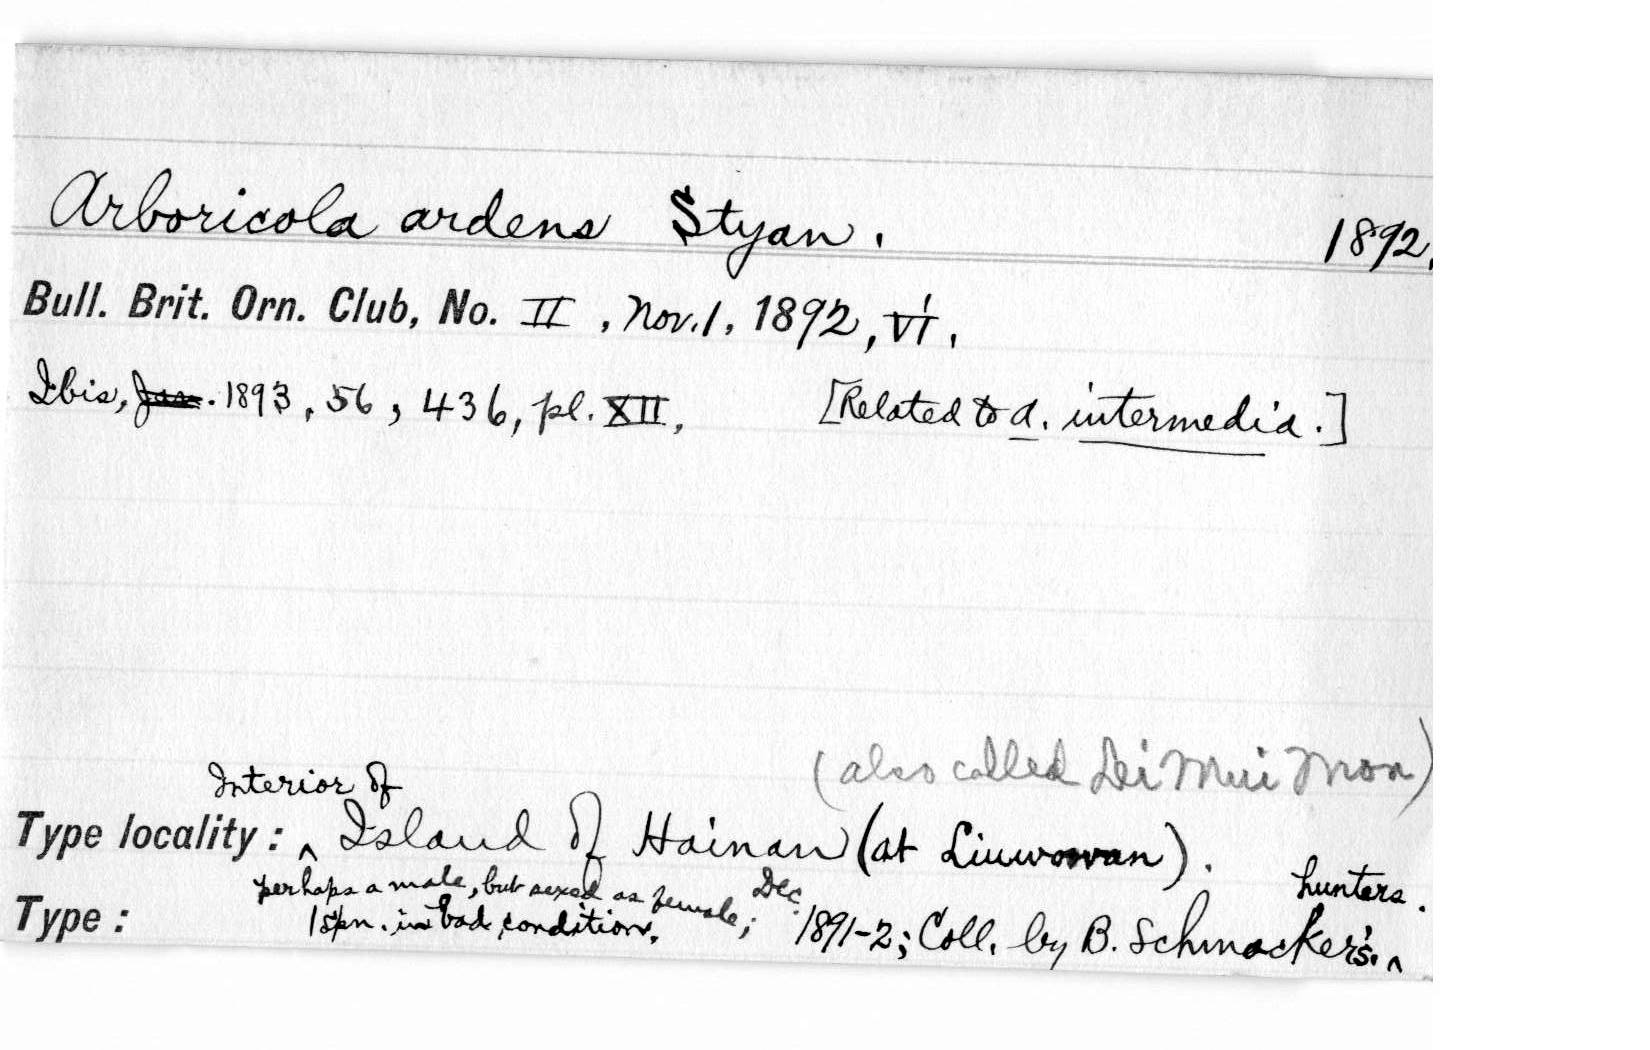 Arboricola ardens Styan. 1892.
Bull. Brit. Orn. Club, No. II, Nov. 1, 1892, vi.
Ibis, Jan. 1893, 56, 436, pl. XII, [Related to A. intermedia.]
(also called Lei Mui Mon)
Interior of
Type locality: ^ Island of Hainan (at Liuwowan).
perhaps a male, but sexed as female; Dec. hunters.
Type: 1 spn. in bad condition, 1891-2; Coll. by B. Schmacker's. ^